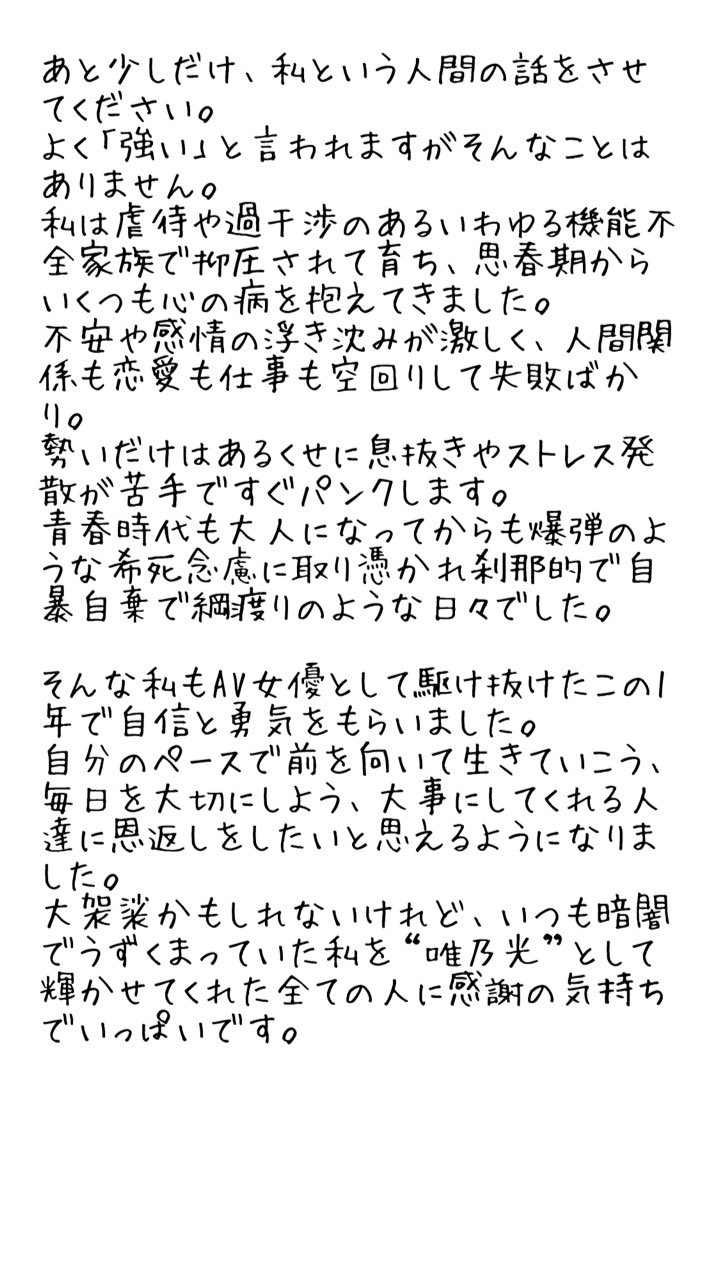 あと少しだけ、私という人間の話をさせ
てください。
よく「強い」と言われますがそんなことは
ありません。
私は虐待や過干渉のあるいわゆる機能不
全家族で抑圧されて育ち、思春期から
いくつも心の病を抱えてきました。
不安や感情の浮き沈みが激しく、人間関
係も恋愛も仕事も空回りして失敗ばか
り。
勢いだけはあるくせに息抜きやストレス発
散が苦手ですぐパンクします。
青春時代も大人になってからも爆弾のよ
うな希死念慮に取り憑かれ刹那的で自
暴自棄で綱渡りのような日々でした。

そんな私もAV女優として駆け抜けたこの1
年で自信と勇気をもらいました。
自分のペースで前を向いて生きていこう、
毎日を大切にしよう、大事にしてくれる人
達に恩返しをしたいと思えるようになりま
した。
大袈裟かもしれないけれど、いつも暗闇
でうずくまっていた私を“唯乃光”として
輝かせてくれた全ての人に感謝の気持ち
でいっぱいです。